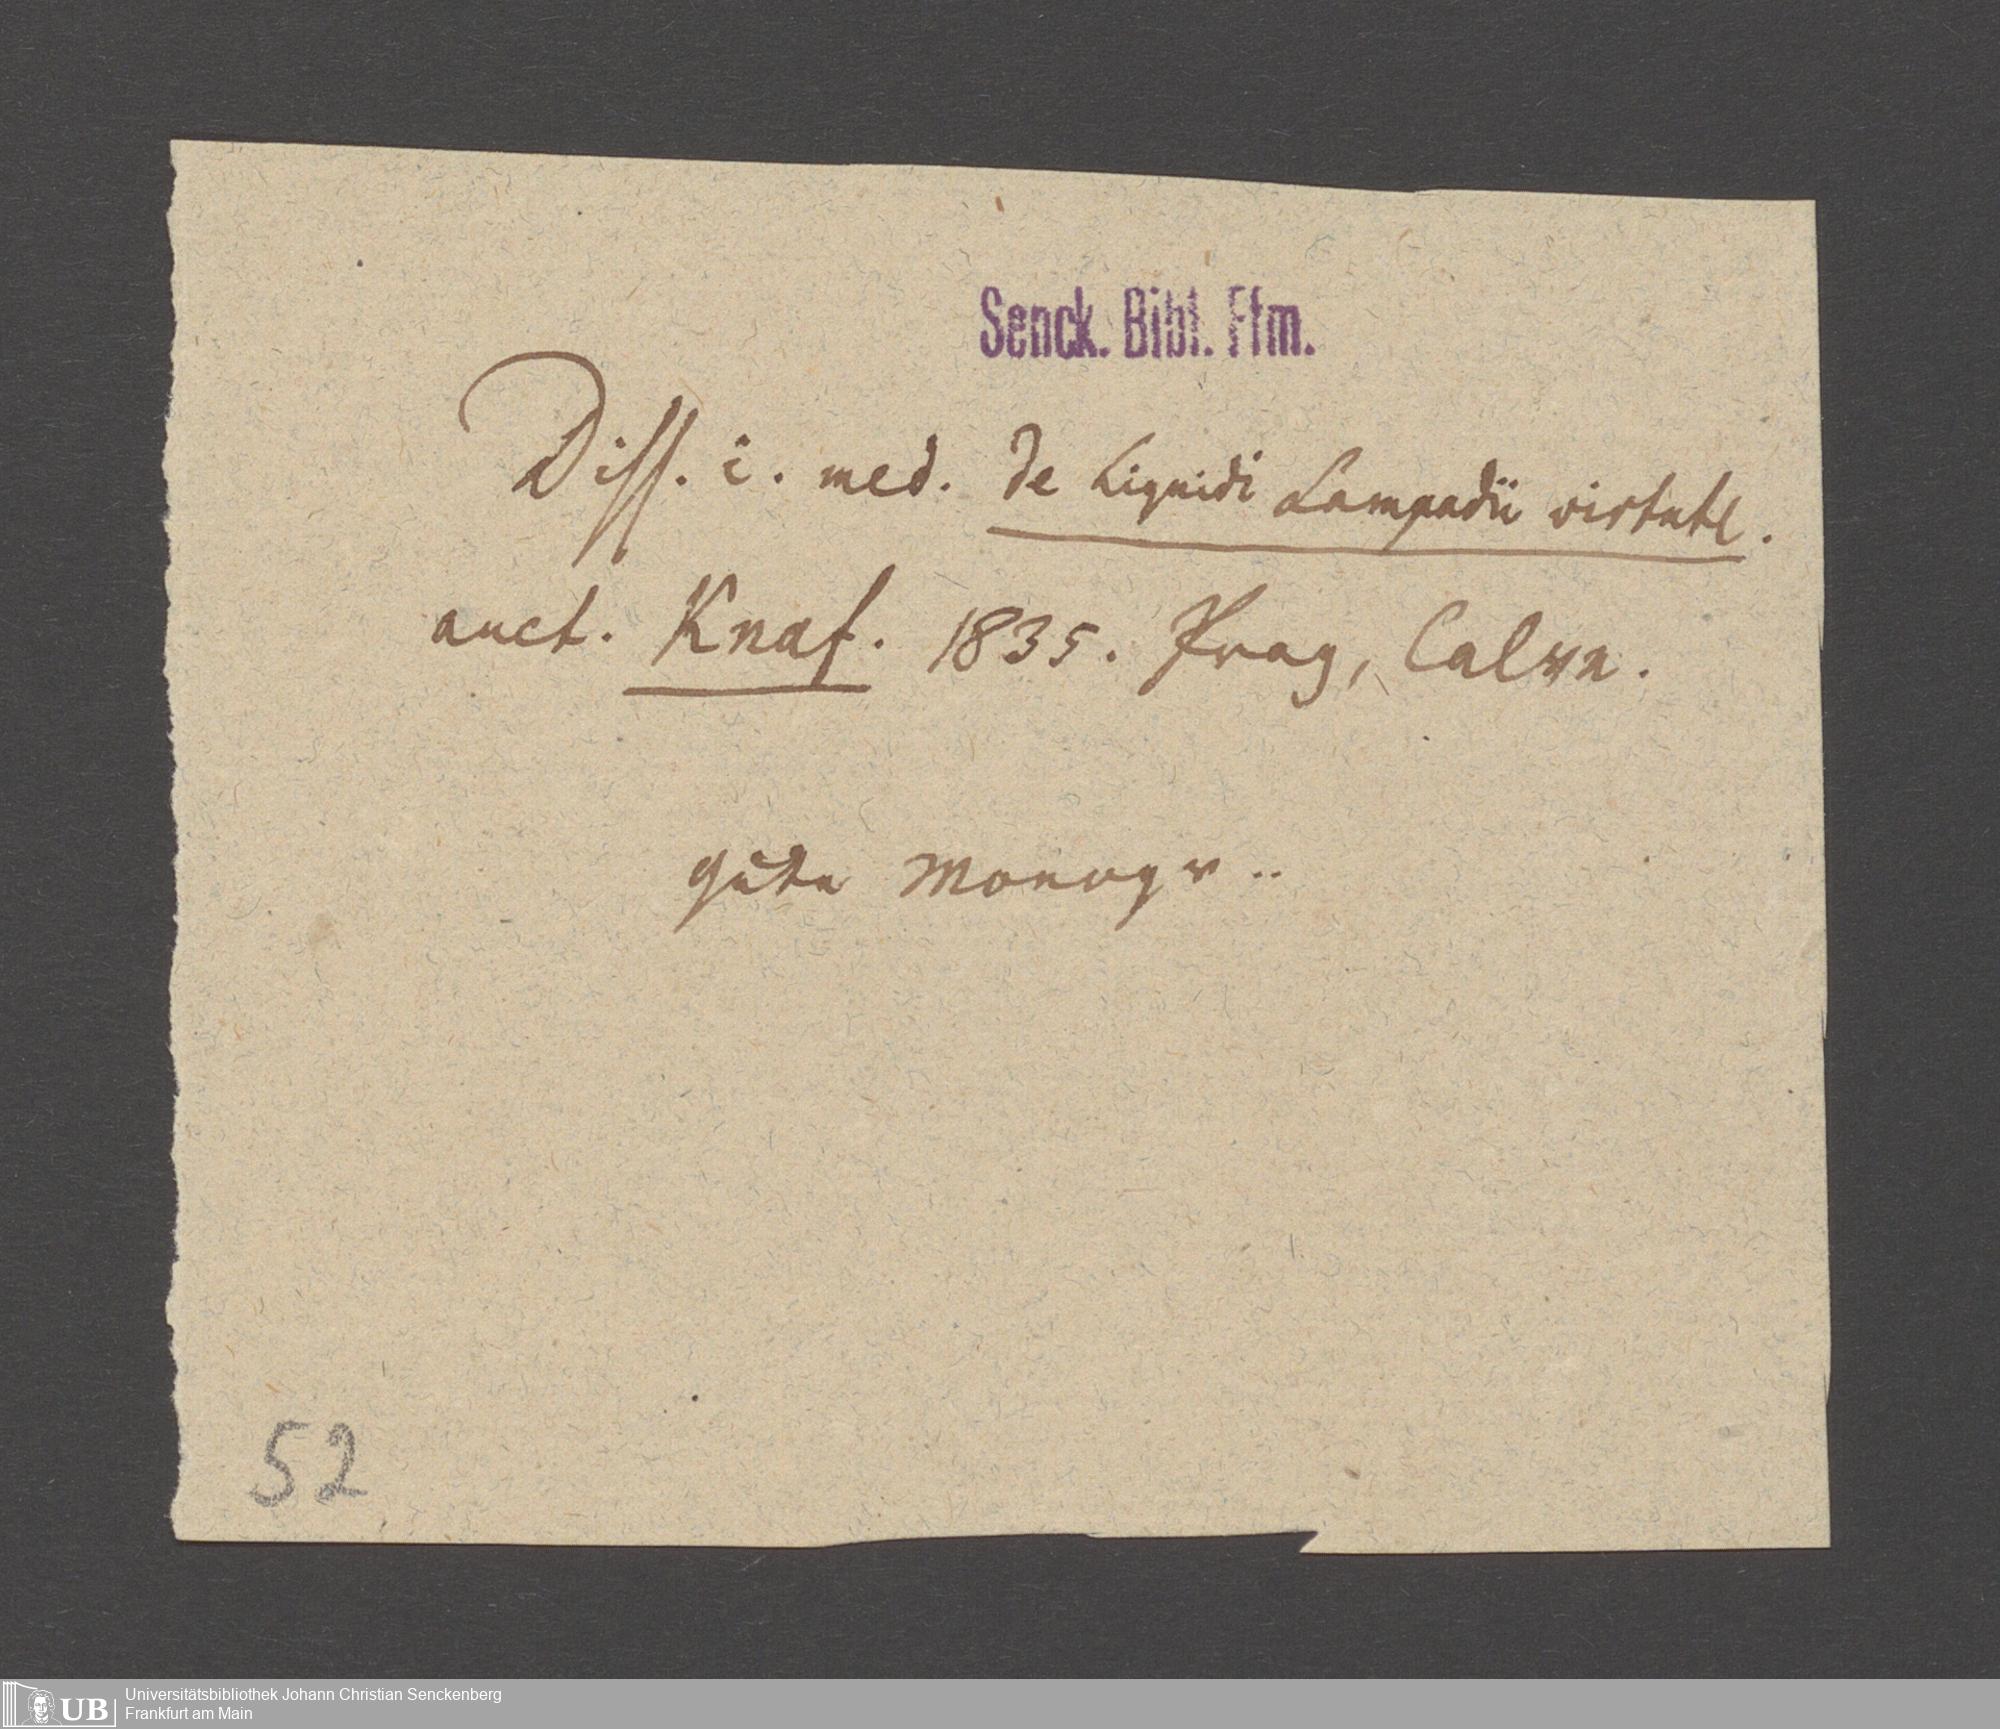 Senck. Bibl. Ffm.
Diss. i. med. de Liquidi Lampadii virtute.
auct. Knaf. 1835. Prag, Calve.
gute Monogr..
52
UB
Universitätsbibliothek Johann Christian Senckenberg
Frankfurt am Main